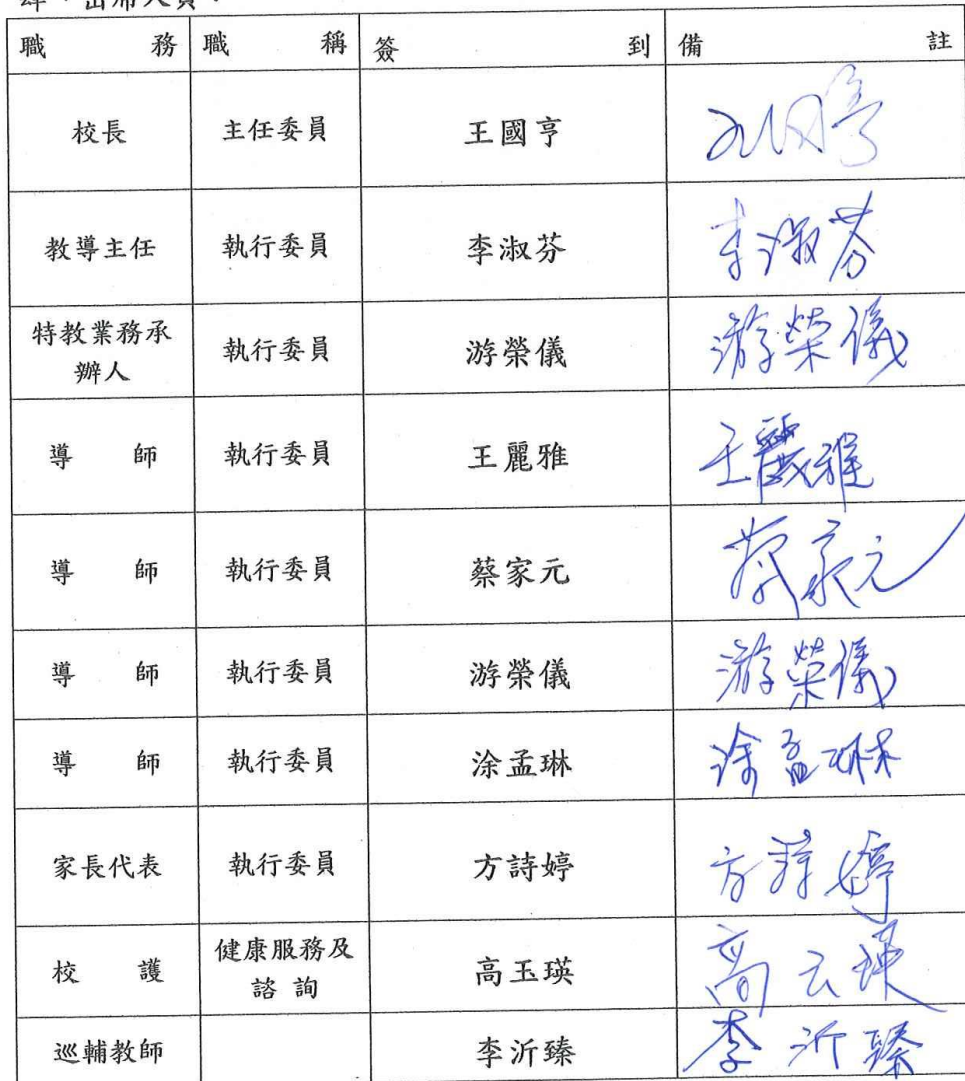 肆、出席人員：
職務 職稱 簽到 備註
校長 主任委員 王國亨 王國亨
教導主任 執行委員 李淑芬 李淑芬
特教業務承
辦人 執行委員 游榮儀 游榮儀
導師 執行委員 王麗雅 王麗雅
導師 執行委員 蔡家元 蔡家元
導師 執行委員 游榮儀 游榮儀
導師 執行委員 涂孟琳 涂孟琳
家長代表 執行委員 方詩婷 方詩婷
校護 健康服務及
諮詢 高玉瑛 高玉瑛
巡輔教師 李沂臻 李沂臻